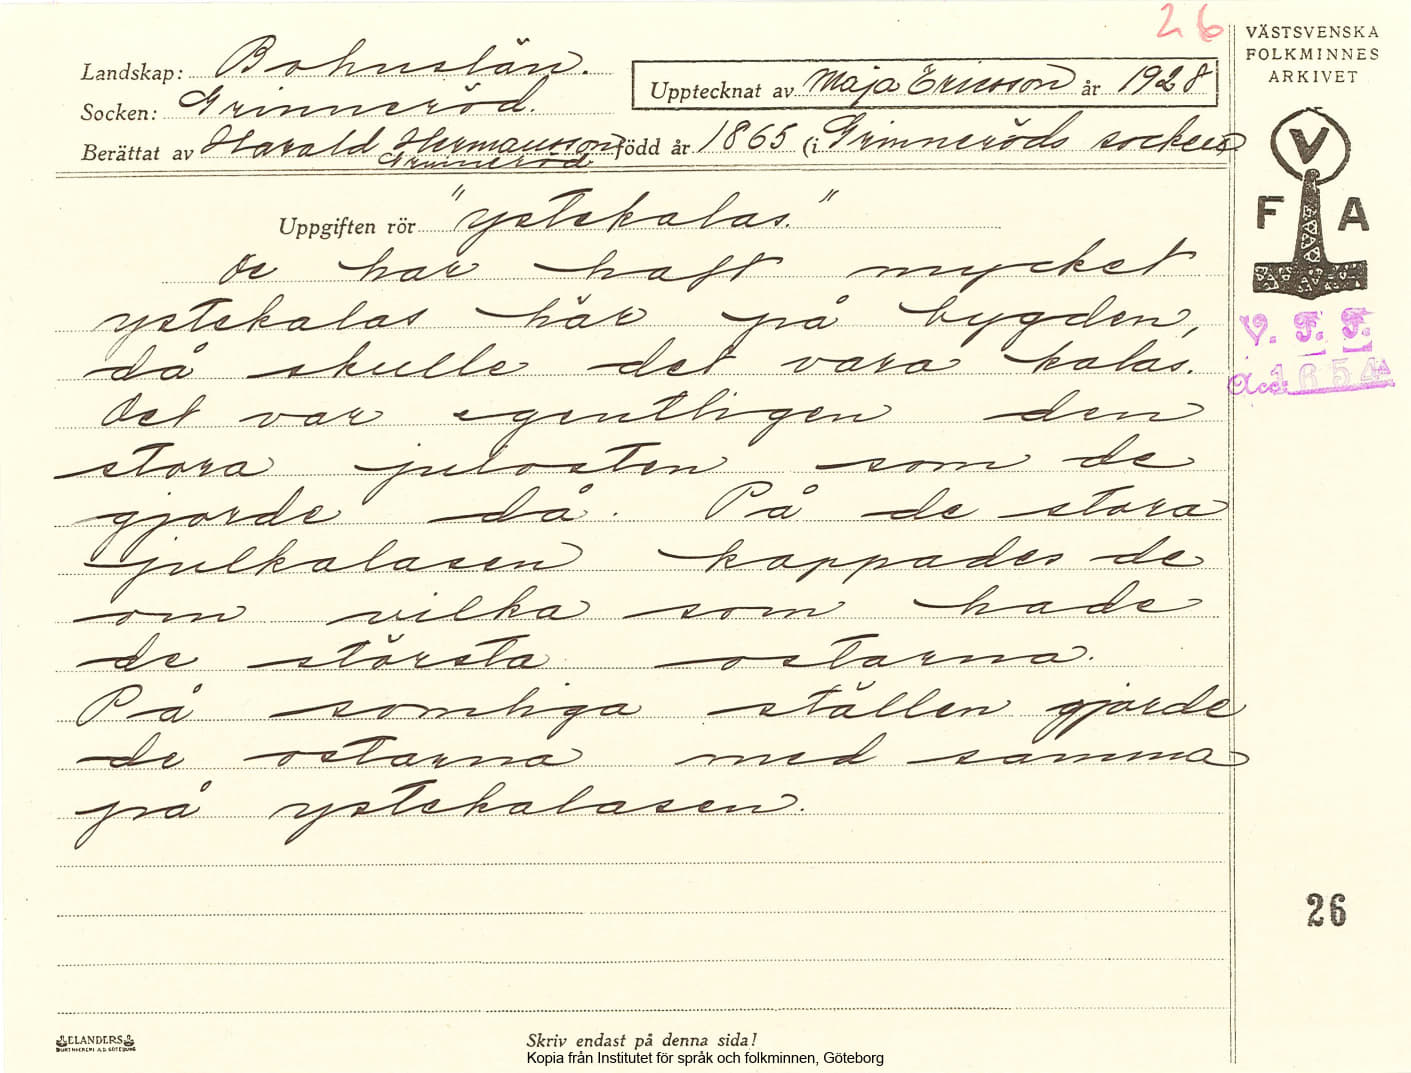 26
VÄSTSVENSKA
FOLKMINNES
ARKIVET
Landskap: Bohuslän.
Upptecknat av Maja Ericsson år 1928
Socken: Grinneröd.
Berättat av Harald Hermansson född år 1865 (i Grinneröds socken)
Grinneröd
V
F A
Uppgiften rör "ystekalas."
De har haft mycket
ystekalas här på bygden,
då skulle det vara kalas.
Det var egentligen den
stora julosten som de
gjorde då. På de stora
julkalasen kappades de
om vilka som hade
de största ostarna.
På somliga ställen gjorde
de ostarna med samma
på ystekalasen.
V. F. F.
Acc. 1654
26
ELANDERS
Skriv endast på denna sida!
Kopia från Institutet för språk och folkminnen, Göteborg